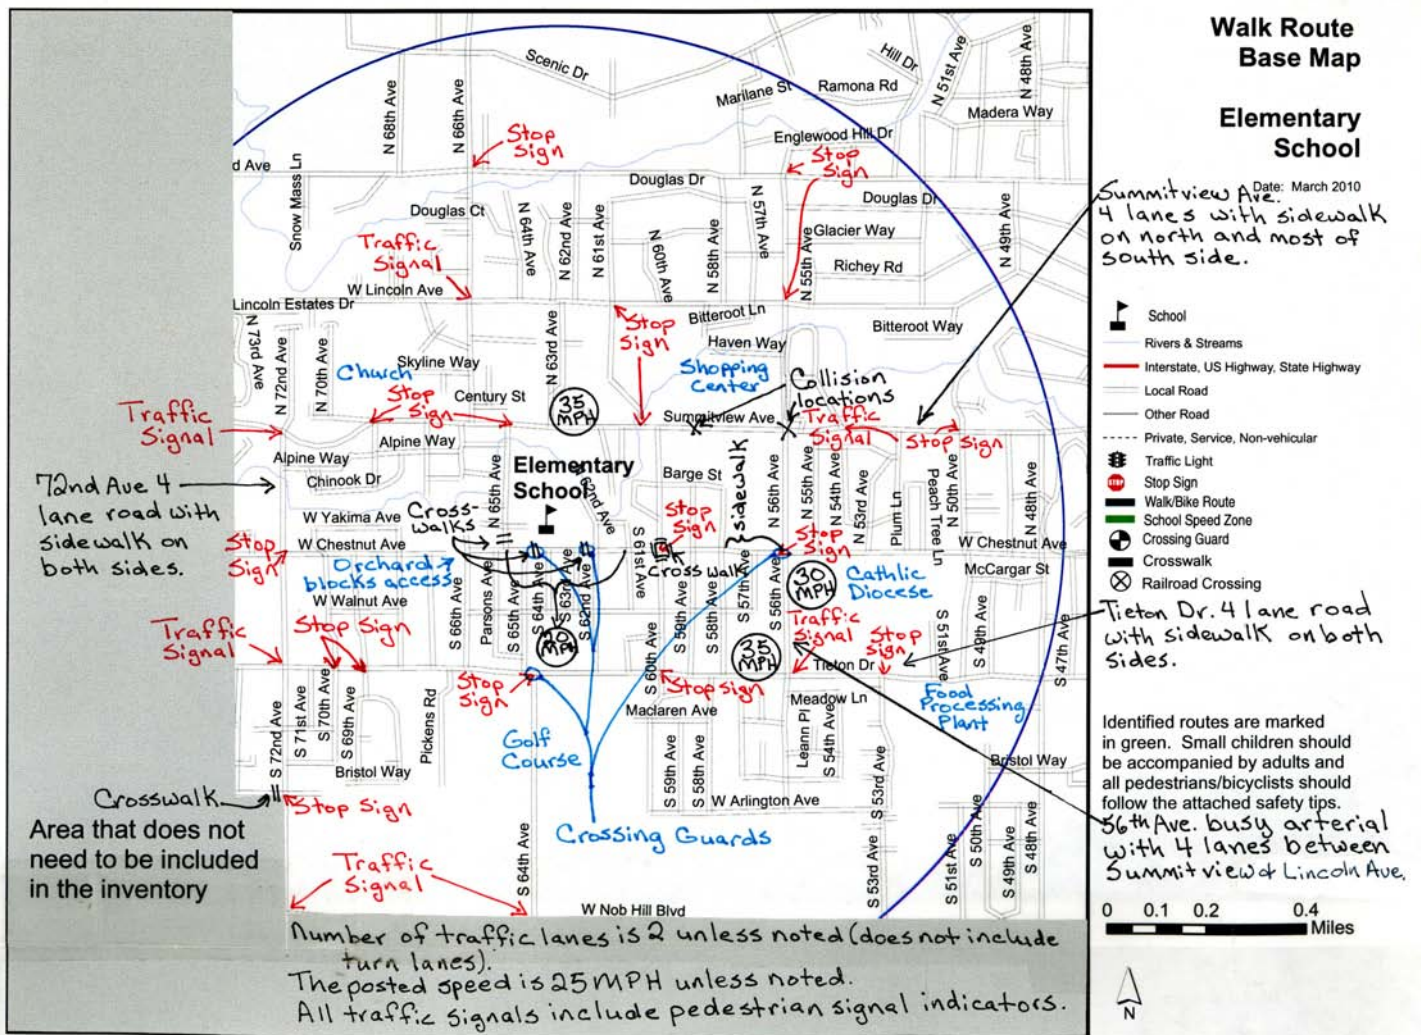 Walk Route
Base Map
Elementary
School
Date: March 2010
Summitview Ave.
4 lanes with sidewalk
on north and most of
south side.
School
Rivers & Streams
Interstate, US Highway, State Highway
Local Road
Other Road
Private, Service, Non-vehicular
Traffic Light
STOP
Stop Sign
Walk/Bike Route
School Speed Zone
Crossing Guard
Crosswalk
Railroad Crossing
Tieton Dr. 4 lane road
with sidewalk on both
sides.
Identified routes are marked
in green. Small children should
be accompanied by adults and
all pedestrians/bicyclists should
follow the attached safety tips.
56th Ave. busy arterial
with 4 lanes between
Summitview & Lincoln Ave.
0 0.1 0.2 0.4
Miles
N
Scenic Dr
Hill Dr
N 51st Ave
N 48th Ave
Marilane St
Ramona Rd
Madera Way
N 68th Ave
N 66th Ave
Stop
Sign
Englewood Hill Dr
Stop
Sign
d Ave
Snow Mass Ln
Douglas Dr
Douglas Dr
Douglas Ct
N 64th Ave
N 62nd Ave
N 61st Ave
N 60th Ave
N 58th Ave
N 57th Ave
N 55th Ave
Glacier Way
N 49th Ave
Richey Rd
Traffic
Signal
W Lincoln Ave
Lincoln Estates Dr
Bitteroot Ln
Bitteroot Way
Haven Way
Stop
Sign
N 73rd Ave
N 72nd Ave
N 70th Ave
N 63rd Ave
Skyline Way
Church
Shopping
Center
Collision
locations
Stop
Sign
Century St
35
MPH
Summitview Ave
Traffic
Signal
Stop Sign
Traffic
Signal
Alpine Way
Alpine Way
Chinook Dr
72nd Ave 4
lane road with
sidewalk on
both sides.
Elementary
School
N 62nd Ave
Barge St
sidewalk
N 65th Ave
N 56th Ave
N 55th Ave
N 54th Ave
N 53rd Ave
Plum Ln
Peach Tree Ln
N 50th Ave
N 48th Ave
W Yakima Ave
Cross-
walks
Stop
Sign
S 61st Ave
W Chestnut Ave
Stop
Sign
Stop
Sign
W Chestnut Ave
Cross walk
McCargar St
Orchard
blocks access
30
MPH
Cathlic
Diocese
W Walnut Ave
S 66th Ave
Parsons Ave
S 65th Ave
S 64th Ave
S 63rd Ave
S 62nd Ave
S 60th Ave
S 59th Ave
S 58th Ave
S 57th Ave
S 56th Ave
S 51st Ave
S 49th Ave
S 47th Ave
Traffic
Signal
Stop Sign
20
MPH
35
MPH
Traffic
Signal
Stop
Sign
Tieton Dr
Stop
Sign
Stop Sign
Meadow Ln
Food
Processing
Plant
Maclaren Ave
S 72nd Ave
S 71st Ave
S 70th Ave
S 69th Ave
Pickens Rd
Golf
Course
Leann Pl
S 54th Ave
S 53rd Ave
Bristol Way
Bristol Way
S 59th Ave
S 58th Ave
W Arlington Ave
Crosswalk
Stop Sign
Crossing Guards
Area that does not
need to be included
in the inventory
Traffic
Signal
S 64th Ave
S 53rd Ave
S 51st Ave
S 50th Ave
S 49th Ave
S 48th Ave
W Nob Hill Blvd
Number of traffic lanes is 2 unless noted (does not include
turn lanes).
The posted speed is 25 MPH unless noted.
All traffic signals include pedestrian signal indicators.